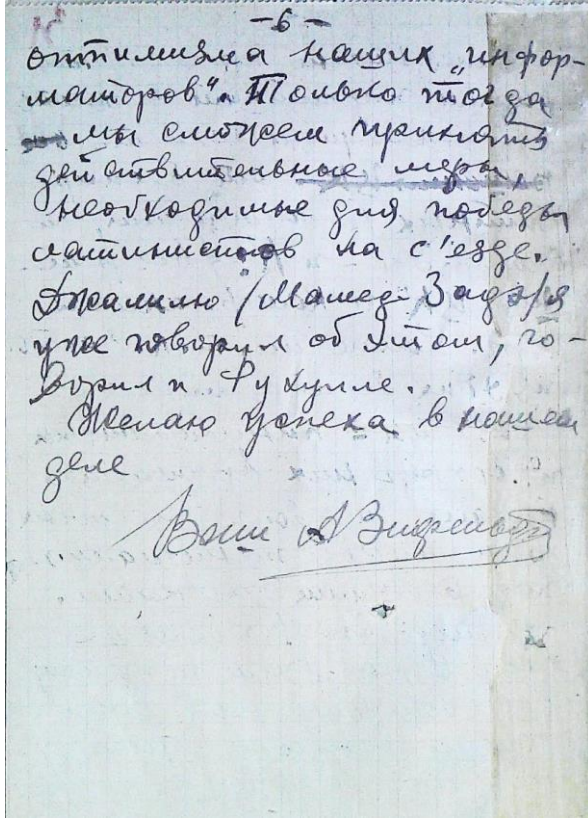 -6-
оптимизма наших „инфор-
маторов“. Только тогда
мы сможем принять
действительные меры,
необходимые для победы
латинистов на с'езде.
Джалилю /Мамед-Задэ/ я
уже говорил об этом, го-
ворил и Рухулле.
Желаю успеха в нашем
деле
Ваш А